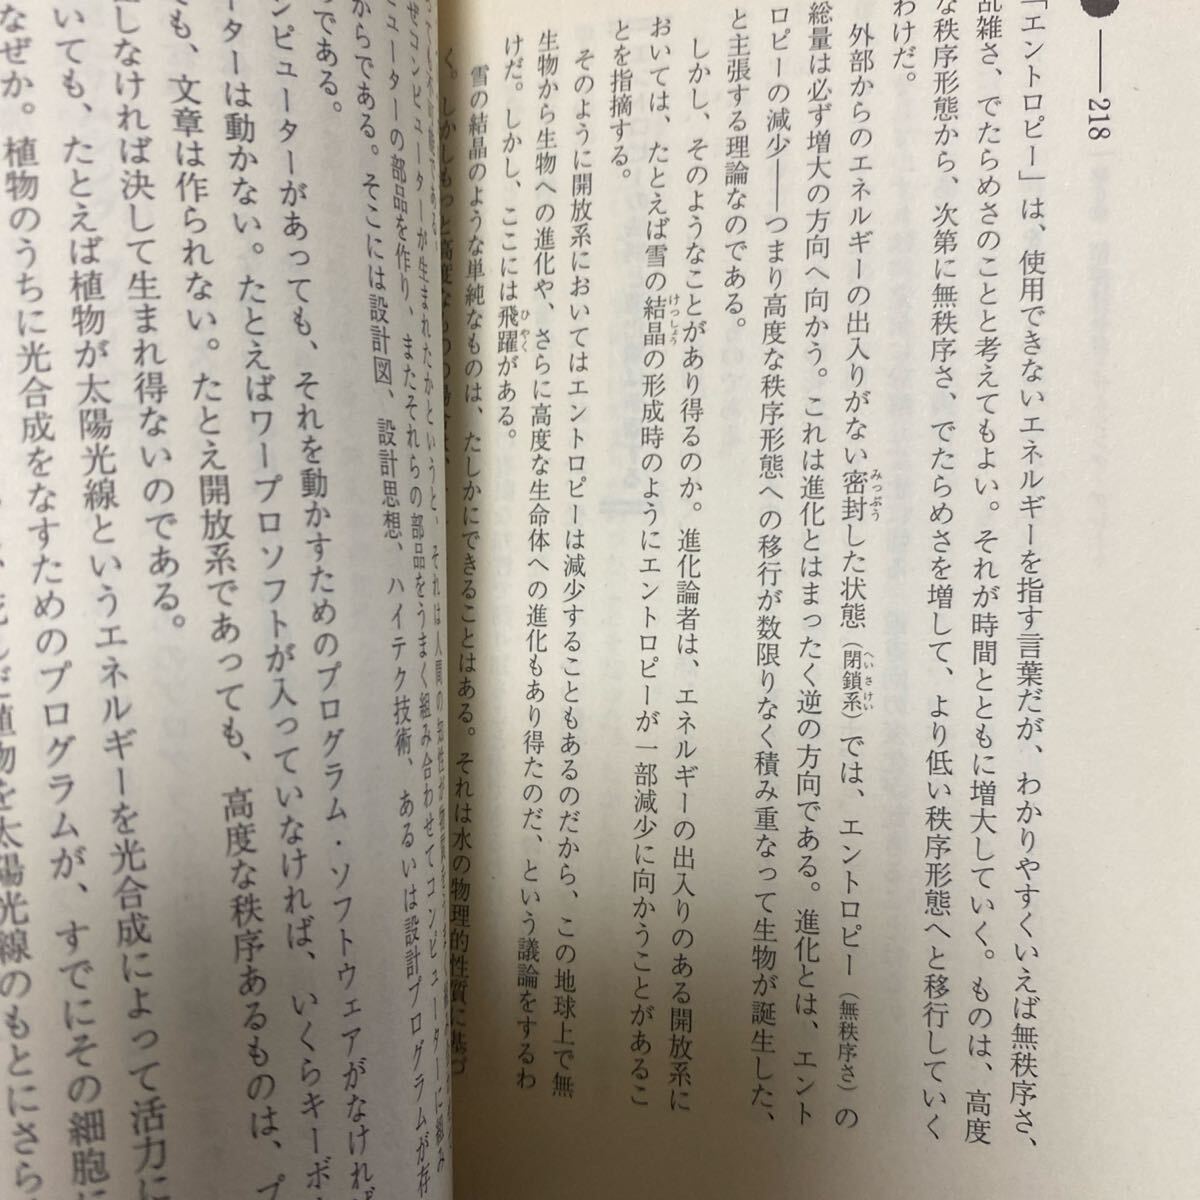 218
「エントロピー」は、使用できないエネルギーを指す言葉だが、わかりやすくいえば無秩序さ、
乱雑さ、でたらめさのことと考えてもよい。それが時間とともに増大していく。ものは、高度
な秩序形態から、次第に無秩序さ、でたらめさを増して、より低い秩序形態へと移行していく
わけだ。
外部からのエネルギーの出入りがない密封した状態（閉鎖系）では、エントロピー（無秩序さ）の
総量は必ず増大の方向へ向かう。これは進化とはまったく逆の方向である。進化とは、エント
ロピーの減少――つまり高度な秩序形態への移行が数限りなく積み重なって生物が誕生した、
と主張する理論なのである。
しかし、そのようなことがあり得るのか。進化論者は、エネルギーの出入りのある開放系に
おいては、たとえば雪の結晶の形成時のようにエントロピーが一部減少に向かうことがあるこ
とを指摘する。
そのように開放系においてはエントロピーは減少することもあるのだから、この地球上で無
生物から生物への進化や、さらに高度な生命体への進化もあり得たのだ、という議論をするわ
けだ。しかし、ここには飛躍がある。
雪の結晶のような単純なものは、たしかにできることはある。それは水の物理的性質に基づ
く。しかしもっと高度なもの
ぜコンピューターが生まれたかというと、それは人間の知性が
ューターの部品を作り、またそれらの部品をうまく組み合わせてコンピューターに組み
からである。そこには設計図、設計思想、ハイテク技術、あるいは設計プログラムが存
のである。
ンピューターがあっても、それを動かすためのプログラム・ソフトウェアがなければ
ターは動かない。たとえばワープロソフトが入っていなければ、いくらキーボ
ても、文章は作られない。たとえ開放系であっても、高度な秩序あるものは、プ
しなければ決して生まれ得ないのである。
いても、たとえば植物が太陽光線というエネルギーを光合成によって活力に
なぜか。植物のうちに光合成をなすためのプログラムが、すでにその細胞に
植物を太陽光線のもとにさら